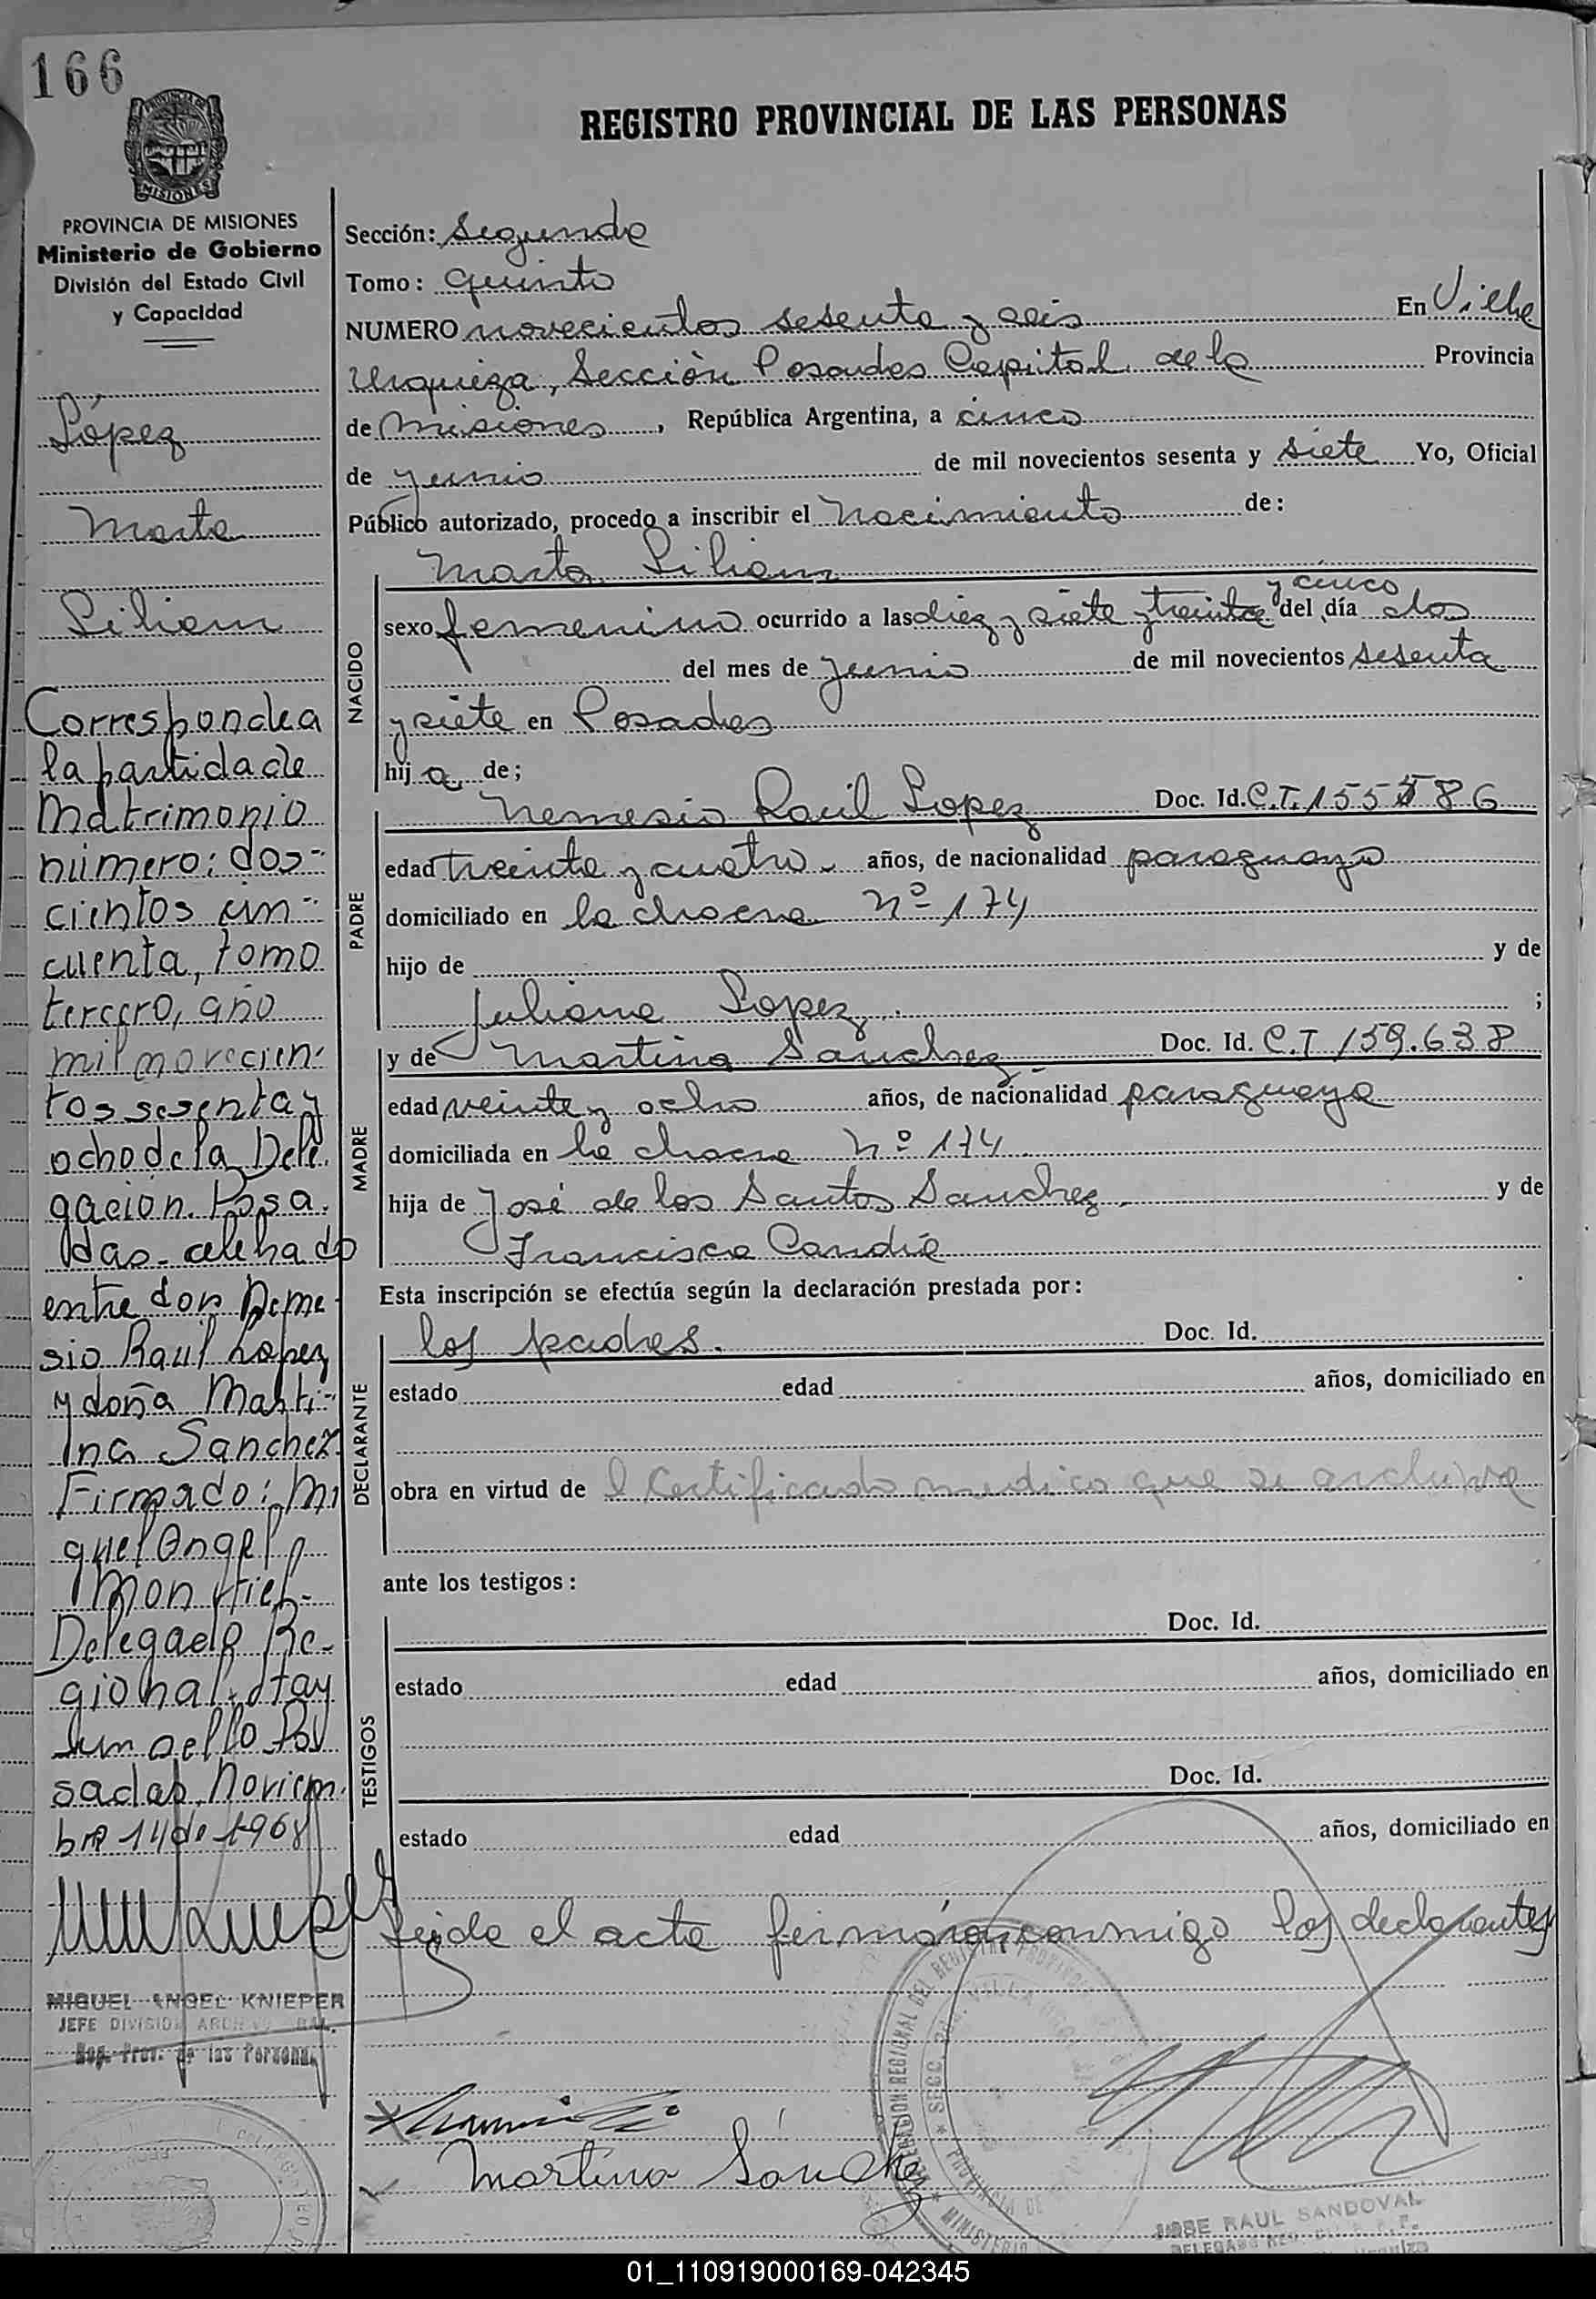 166
REGISTRO PROVINCIAL DE LAS PERSONAS
MISIONES
PROVINCIA DE MISIONES
Ministerio de Gobierno
División del Estado Civil
y Capacidad
López
Marta
Lilian
Corresponde a
la partida de
Matrimonio
número: dos-
cientos cin-
cuenta, tomo
tercero, año
mil novecien-
tos sesenta y
ocho de la Dele-
gación Posa-
das celebrado
entre don Neme-
sio Raul Lopez
y doña Marti-
na Sanchez
Firmado: Mi
guel Angel
Montiel-
Delegado Re-
gional. Hay
un sello Po
sadas, Noviem-
bre 14 de 1968
MIGUEL ANGEL KNIEPER
JEFE DIVISION ARCH GRAL.
Reg. Prov. de las Personas
Sección: Segunda
Tomo: quinto
NUMERO novecientos sesenta y seis En Villa
Urquiza, Sección Posadas Capital de la Provincia
de Misiones, República Argentina, a cinco
de junio de mil novecientos sesenta y siete Yo, Oficial
Público autorizado, procedo a inscribir el Nacimiento de:
NACIDO
Marta Lilian
y cinco
sexo femenino ocurrido a las diez y siete y treinta del día dos
del mes de junio de mil novecientos sesenta
y siete en Posadas
hij a de;
PADRE
Nemesio Raúl Lopez Doc. Id. C.T.
edad treinta y cuatro años, de nacionalidad paraguayo
domiciliado en la chacra Nº 174
hijo de y de
Juliana Lopez ;
MADRE
y de Martina Sanchez Doc. Id. C.T 159.638
edad veinte y ocho años, de nacionalidad paraguaya
domiciliada en la chacra Nº 174
hija de José de los Santos Sanchez y de
Francisca Candia
Esta inscripción se efectúa según la declaración prestada por:
DECLARANTE
los padres. Doc. Id.
estado edad años, domiciliado en
obra en virtud de l Certificado medico que se archiva
ante los testigos:
TESTIGOS
Doc. Id.
estado edad años, domiciliado en
Doc. Id.
estado edad años, domiciliado en
Leida el acta firmáron conmigo los declarantes
Martina Sánchez
JOSE RAUL SANDOVAL
01_110919000169-042345